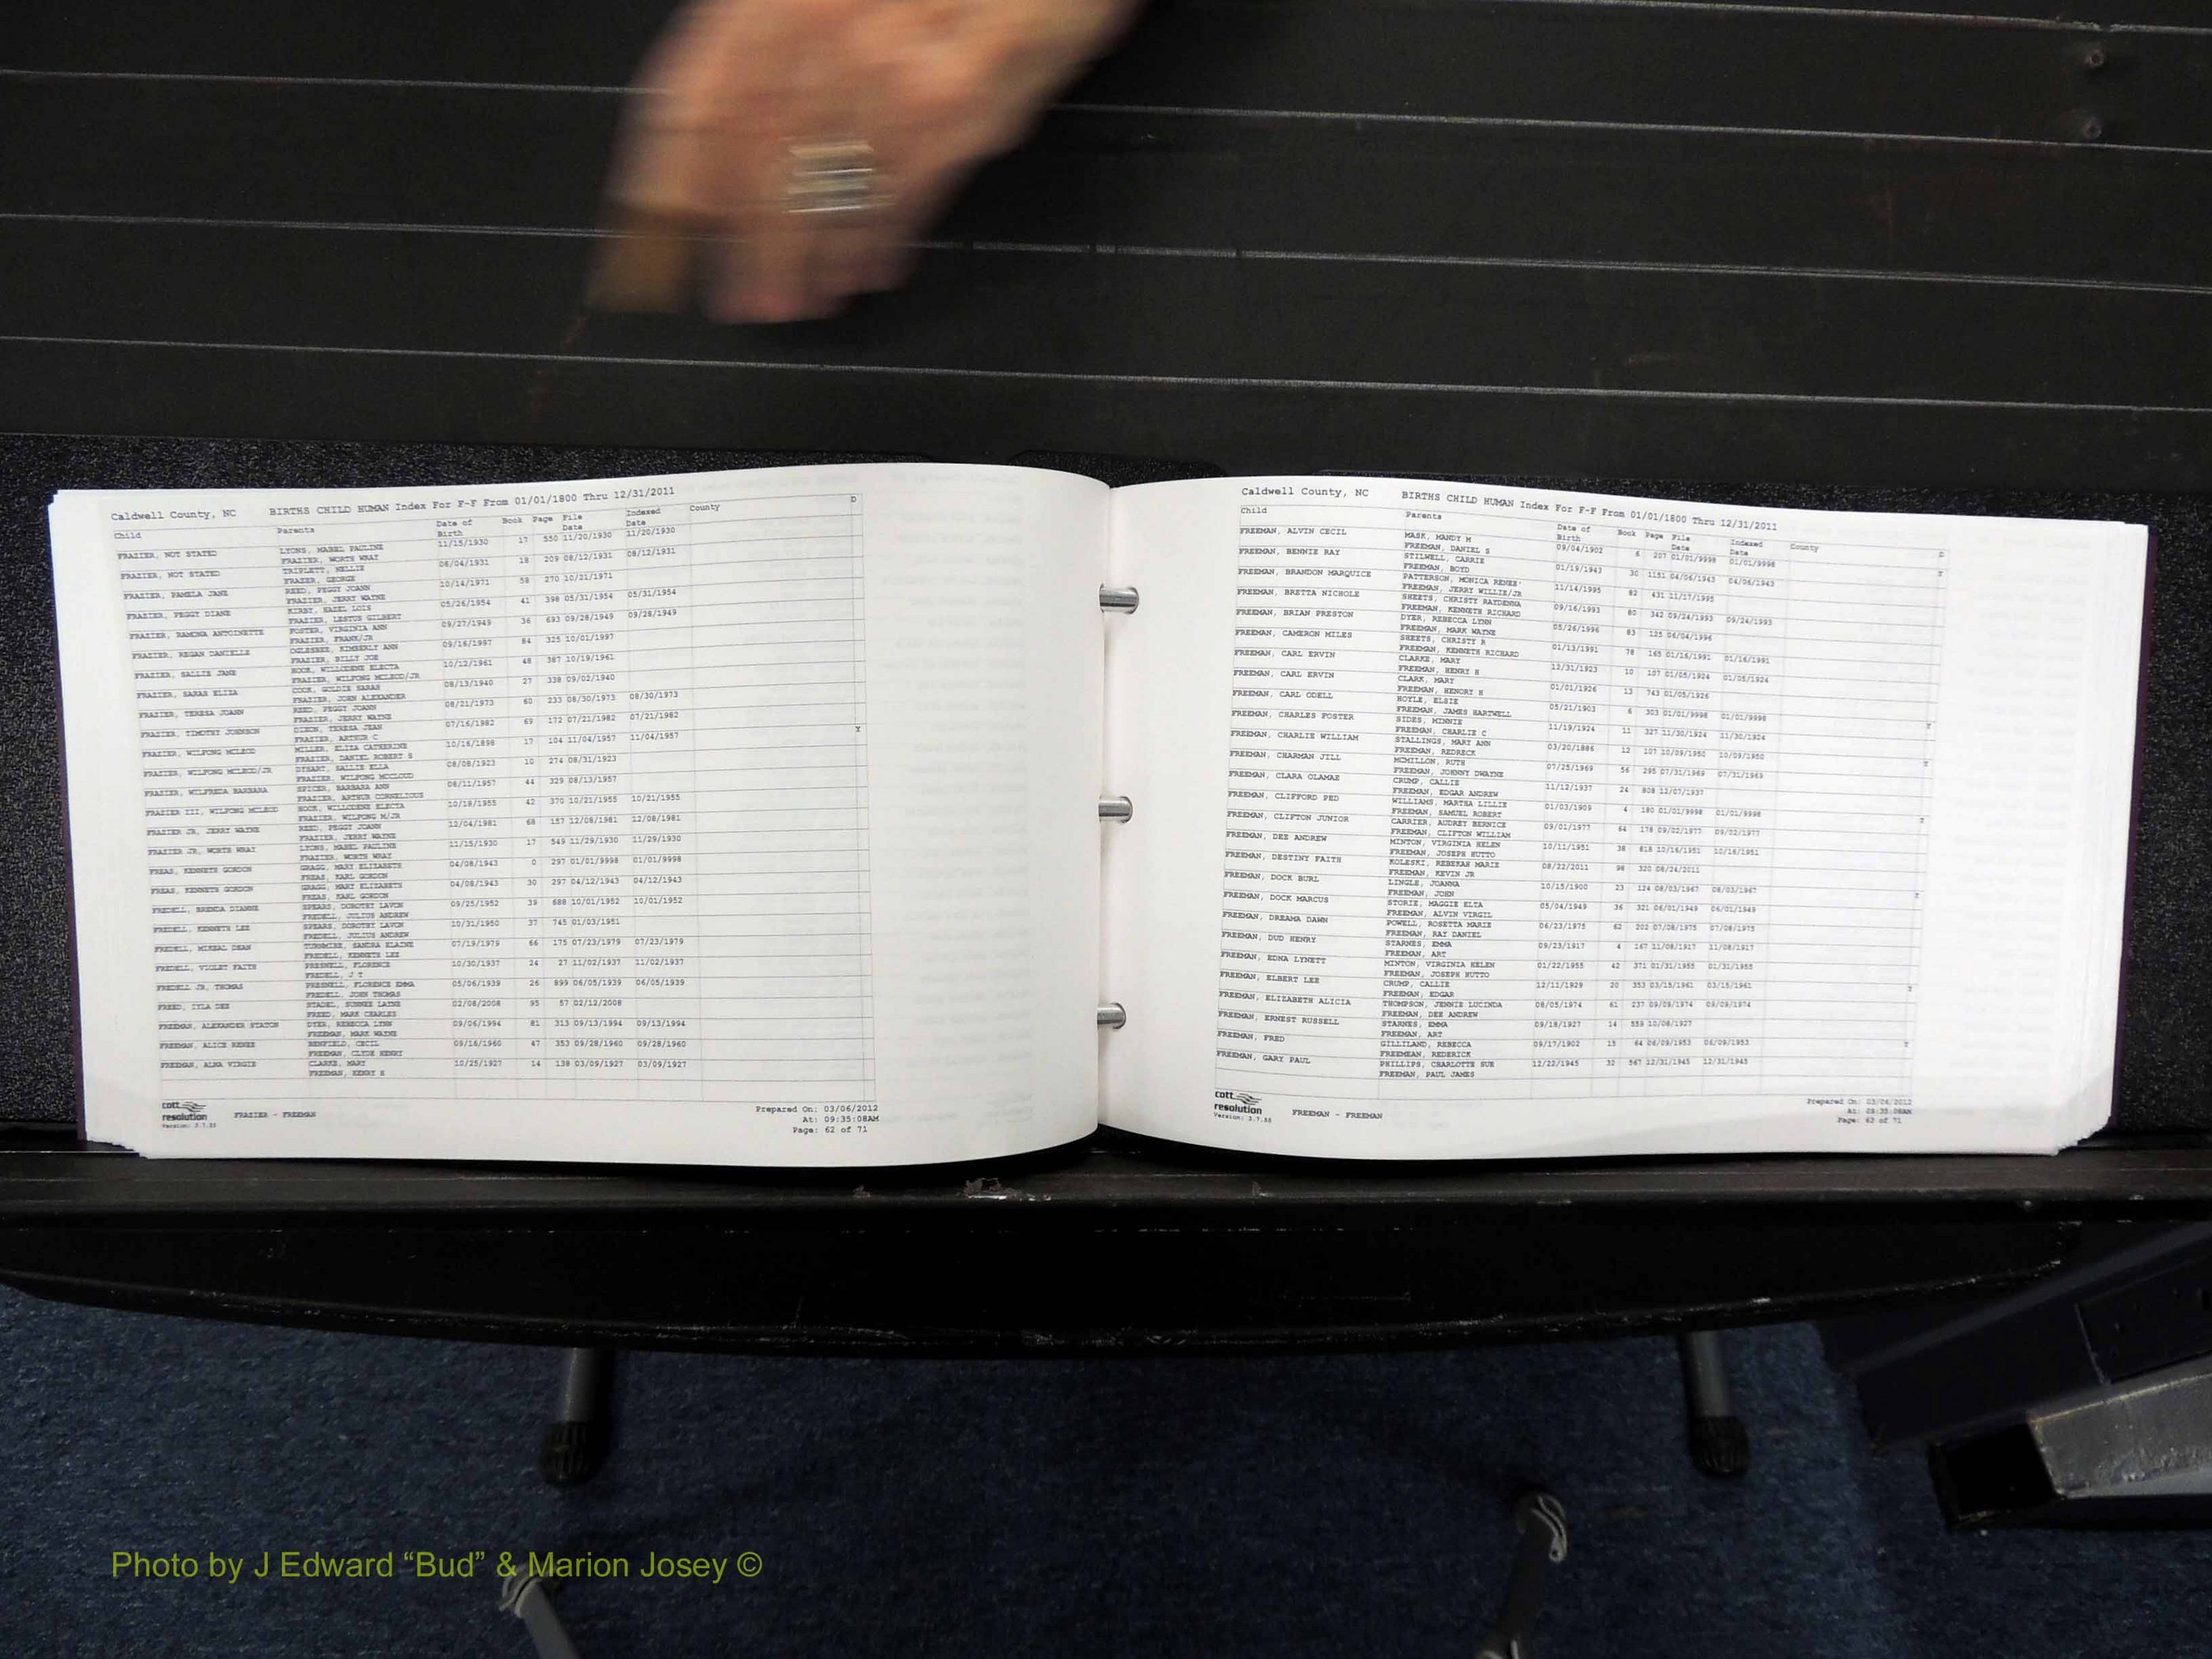 Caldwell County, NC BIRTHS CHILD HUMAN Index For F-F From 01/01/1800 Thru 12/31/2011
Child Parents Date of Birth Book Page File Date Indexed Date County D
FRAZIER, NOT STATED LYONS, MABEL PAULINE 11/15/1930 17 550 11/20/1930 11/20/1930
FRAZIER, WORTH WRAY
FRAZIER, NOT STATED TRIPLETT, NELLIE 08/04/1931 18 209 08/12/1931 08/12/1931
FRAZER, GEORGE
FRAZIER, PAMELA JANE REED, PEGGY JOANN 10/14/1971 58 270 10/21/1971
FRAZIER, JERRY WAYNE
FRAZIER, PEGGY DIANE KIRBY, HAZEL LOIS 05/26/1954 41 398 05/31/1954 05/31/1954
FRAZIER, LESTUS GILBERT
FRAZIER, RAMONA ANTOINETTE FOSTER, VIRGINIA ANN 09/27/1949 36 693 09/28/1949 09/28/1949
FRAZIER, FRANK/JR
FRAZIER, REGAN DANIELLE OGLESBEE, KIMBERLY ANN 09/16/1997 84 325 10/01/1997
FRAZIER, BILLY JOE
FRAZIER, SALLIE JANE HOOK, WILLODENE ELECTA 10/12/1961 48 387 10/19/1961
FRAZIER, WILFONG MCLEOD/JR
FRAZIER, SARAH ELIZA COOK, GOLDIE SARAH 08/13/1940 27 338 09/02/1940
FRAZIER, JOHN ALEXANDER
FRAZIER, TERESA JOANN REED, PEGGY JOANN 08/21/1973 60 233 08/30/1973 08/30/1973
FRAZIER, JERRY WAYNE
FRAZIER, TIMOTHY JOHNSON DIXON, TERESA JEAN 07/16/1982 69 172 07/21/1982 07/21/1982
FRAZIER, ARTHUR C
FRAZIER, WILFONG MCLEOD MILLER, ELIZA CATHERINE 10/16/1898 17 104 11/04/1957 11/04/1957 Y
FRAZIER, DANIEL ROBERT S
FRAZIER, WILFONG MCLEOD/JR DYSART, SALLIE ELLA 08/08/1923 10 274 08/31/1923
FRAZIER, WILFONG MCCLOUD
FRAZIER, WILFREDA BARBARA SPICER, BARBARA ANN 08/11/1957 44 329 08/13/1957
FRAZIER, ARTHUR CORNELIOUS
FRAZIER III, WILFONG MCLEOD HOOK, WILLODENE ELECTA 10/18/1955 42 370 10/21/1955 10/21/1955
FRAZIER, WILFONG M/JR
FRAZIER JR, JERRY WAYNE REED, PEGGY JOANN 12/04/1981 68 157 12/08/1981 12/08/1981
FRAZIER, JERRY WAYNE
FRAZIER JR, WORTH WRAY LYONS, MABEL PAULINE 11/15/1930 17 549 11/29/1930 11/29/1930
FRAZIER, WORTH WRAY
FREAS, KENNETH GORDON GRAGG, MARY ELIZABETH 04/08/1943 0 297 01/01/9998 01/01/9998
FREAS, KARL GORDON
FREAS, KENNETH GORDON GRAGG, MARY ELIZABETH 04/08/1943 30 297 04/12/1943 04/12/1943
FREAS, KARL GORDON
FREDELL, BRENDA DIANNE SPEARS, DOROTHY LAVON 09/25/1952 39 688 10/01/1952 10/01/1952
FREDELL, JULIUS ANDREW
FREDELL, KENNETH LEE SPEARS, DOROTHY LAVON 10/31/1950 37 745 01/03/1951
FREDELL, JULIUS ANDREW
FREDELL, MIKEAL DEAN TURNMIRE, SANDRA ELAINE 07/19/1979 66 175 07/23/1979 07/23/1979
FREDELL, KENNETH LEE
FREDELL, VIOLET FAITH PRESNELL, FLORENCE 10/30/1937 24 27 11/02/1937 11/02/1937
FREDELL, J T
FREDELL JR, THOMAS PRESNELL, FLORENCE EMMA 05/06/1939 26 899 06/05/1939 06/05/1939
FREDELL, JOHN THOMAS
FREED, IYLA DEE STADEL, SUNNEE LAINE 02/08/2008 95 57 02/12/2008
FREED, MARK CHARLES
FREEMAN, ALEXANDER STATON DYER, REBECCA LYNN 09/06/1994 81 313 09/13/1994 09/13/1994
FREEMAN, MARK WAYNE
FREEMAN, ALICE RENEE BENFIELD, CECIL 09/16/1960 47 353 09/28/1960 09/28/1960
FREEMAN, CLYDE HENRY
FREEMAN, ALMA VIRGIE CLARKE, MARY 10/25/1927 14 138 03/09/1927 03/09/1927
FREEMAN, HENRY H
cott resolution
Version: 3.7.55
FRAZIER - FREEMAN
Prepared On: 03/06/2012
At: 09:35:08AM
Page: 62 of 71
Caldwell County, NC BIRTHS CHILD HUMAN Index For F-F From 01/01/1800 Thru 12/31/2011
Child Parents Date of Birth Book Page File Date Indexed Date County D
FREEMAN, ALVIN CECIL MASK, MANDY M 09/04/1902 6 207 01/01/9998 01/01/9998 Y
FREEMAN, DANIEL S
FREEMAN, BENNIE RAY STILWELL, CARRIE 01/19/1943 30 1151 04/06/1943 04/06/1943
FREEMAN, BOYD
FREEMAN, BRANDON MARQUICE PATTERSON, MONICA RENEE' 11/14/1995 82 431 11/17/1995
FREEMAN, JERRY WILLIE/JR
FREEMAN, BRETTA NICHOLE SHEETS, CHRISTY RAYDENNA 09/16/1993 80 342 09/24/1993 09/24/1993
FREEMAN, KENNETH RICHARD
FREEMAN, BRIAN PRESTON DYER, REBECCA LYNN 05/26/1996 83 125 06/04/1996
FREEMAN, MARK WAYNE
FREEMAN, CAMERON MILES SHEETS, CHRISTY R 01/13/1991 78 165 01/16/1991 01/16/1991
FREEMAN, KENNETH RICHARD
FREEMAN, CARL ERVIN CLARKE, MARY 12/31/1923 10 107 01/05/1924 01/05/1924
FREEMAN, HENRY H
FREEMAN, CARL ERVIN CLARK, MARY 01/01/1926 13 743 01/05/1926
FREEMAN, HENORY H
FREEMAN, CARL ODELL HOYLE, ELSIE 05/21/1903 6 303 01/01/9998 01/01/9998 Y
FREEMAN, JAMES HARTWELL
FREEMAN, CHARLES FOSTER SIDES, MINNIE 11/19/1924 11 327 11/30/1924 11/30/1924
FREEMAN, CHARLIE C
FREEMAN, CHARLIE WILLIAM STALLINGS, MARY ANN 03/20/1886 12 107 10/09/1950 10/09/1950 Y
FREEMAN, REDRECK
FREEMAN, CHARMAN JILL MCMILLON, RUTH 07/25/1969 56 295 07/31/1969 07/31/1969
FREEMAN, JOHNNY DWAYNE
FREEMAN, CLARA OLAMAE CRUMP, CALLIE 11/12/1937 24 808 12/07/1937
FREEMAN, EDGAR ANDREW
FREEMAN, CLIFFORD PED WILLIAMS, MARTHA LILLIE 01/03/1909 4 180 01/01/9998 01/01/9998 Y
FREEMAN, SAMUEL ROBERT
FREEMAN, CLIFTON JUNIOR CARRIER, AUDREY BERNICE 09/01/1977 64 178 09/02/1977 09/02/1977
FREEMAN, CLIFTON WILLIAM
FREEMAN, DEE ANDREW MINTON, VIRGINIA HELEN 10/11/1951 38 818 10/16/1951 10/16/1951
FREEMAN, JOSEPH HUTTO
FREEMAN, DESTINY FAITH KOLESKI, REBEKAH MARIE 08/22/2011 98 320 08/24/2011
FREEMAN, KEVIN JR
FREEMAN, DOCK BURL LINGLE, JOANNA 10/15/1900 23 124 08/03/1967 08/03/1967 Y
FREEMAN, JOHN
FREEMAN, DOCK MARCUS STORIE, MAGGIE ELTA 05/04/1949 36 321 06/01/1949 06/01/1949
FREEMAN, ALVIN VIRGIL
FREEMAN, DREAMA DAWN POWELL, ROSETTA MARIE 06/23/1975 62 202 07/08/1975 07/08/1975
FREEMAN, RAY DANIEL
FREEMAN, DUD HENRY STARNES, EMMA 09/23/1917 4 167 11/08/1917 11/08/1917
FREEMAN, ART
FREEMAN, EDNA LYNETT MINTON, VIRGINIA HELEN 01/22/1955 42 371 01/31/1955 01/31/1955
FREEMAN, JOSEPH HUTTO
FREEMAN, ELBERT LEE CRUMP, CALLIE 12/11/1929 20 353 03/15/1961 03/15/1961 Y
FREEMAN, EDGAR
FREEMAN, ELIZABETH ALICIA THOMPSON, JENNIE LUCINDA 08/05/1974 61 237 09/09/1974 09/09/1974
FREEMAN, DEE ANDREW
FREEMAN, ERNEST RUSSELL STARNES, EMMA 09/18/1927 14 559 10/08/1927
FREEMAN, ART
FREEMAN, FRED GILLILAND, REBECCA 09/17/1902 15 64 06/09/1953 06/09/1953 Y
FREEMEAN, REDERICK
FREEMAN, GARY PAUL PHILLIPS, CHARLOTTE SUE 12/22/1945 32 567 12/31/1945 12/31/1945
FREEMAN, PAUL JAMES
cott resolution
Version: 3.7.55
FREEMAN - FREEMAN
Prepared On: 03/06/2012
At: 09:35:08AM
Page: 63 of 71
Photo by J Edward “Bud” & Marion Josey ©